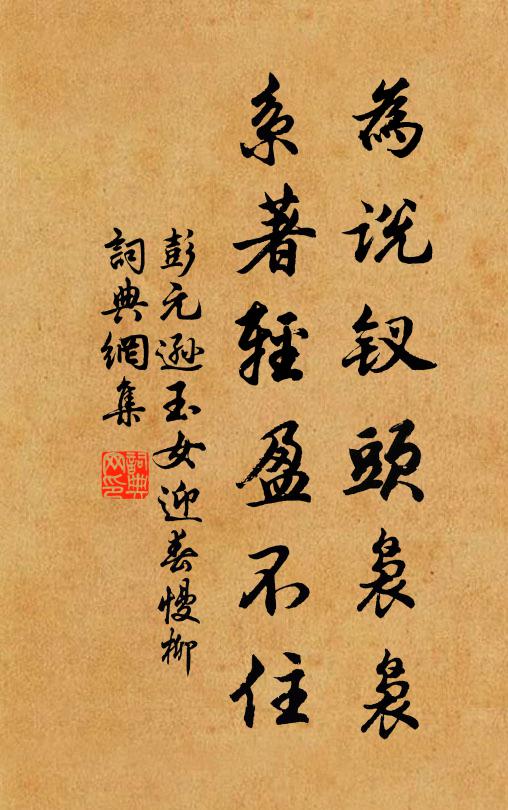 為說釵頭裊裊
系著輕盈不住
彭元遜玉女迎春慢柳
詞典網集
詞典網印